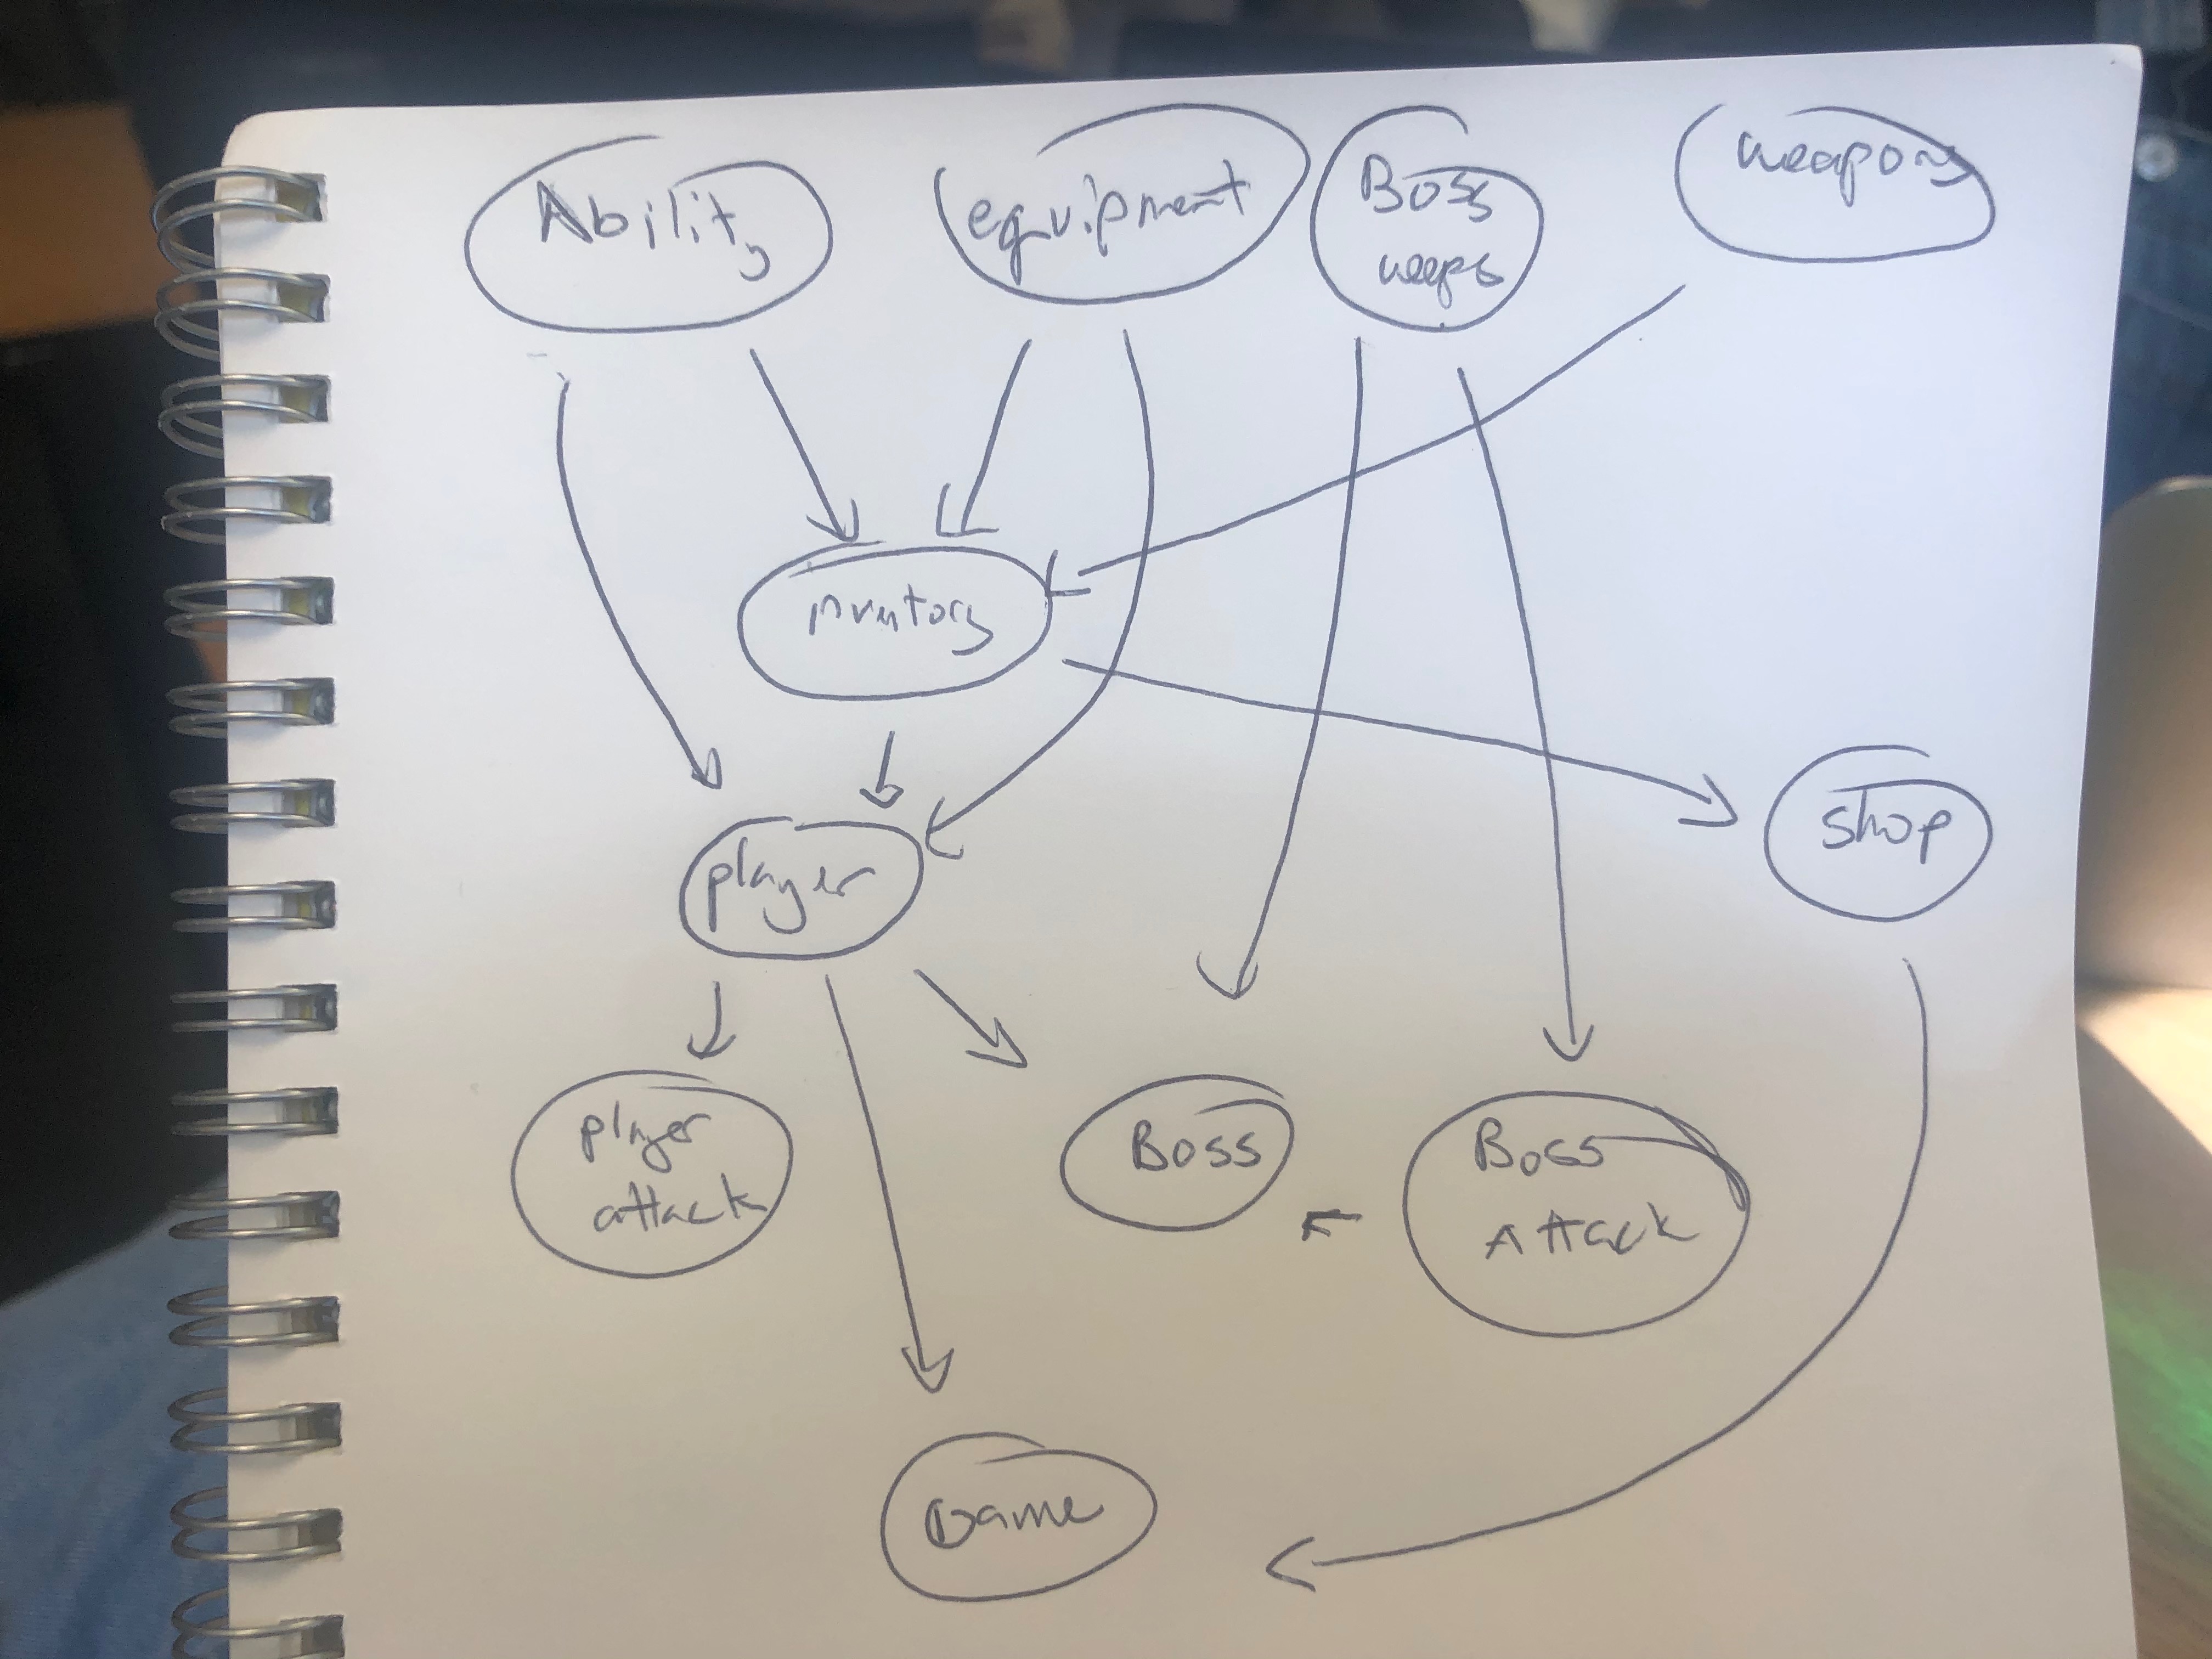 Ability
equipment
Boss
weeps
weapons
inventory
shop
player
player
attack
Boss
Boss
Attack
Game